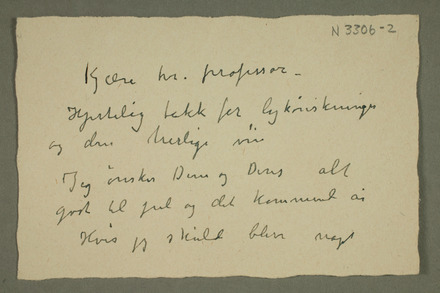 N 3306-2
Kjære hr. professor -
Hjertelig takk for lykønskninger
og den herlige vin
Jeg ønsker Dem og Deres alt
godt til jul og det kommend år
Hvis jeg skuld bliv